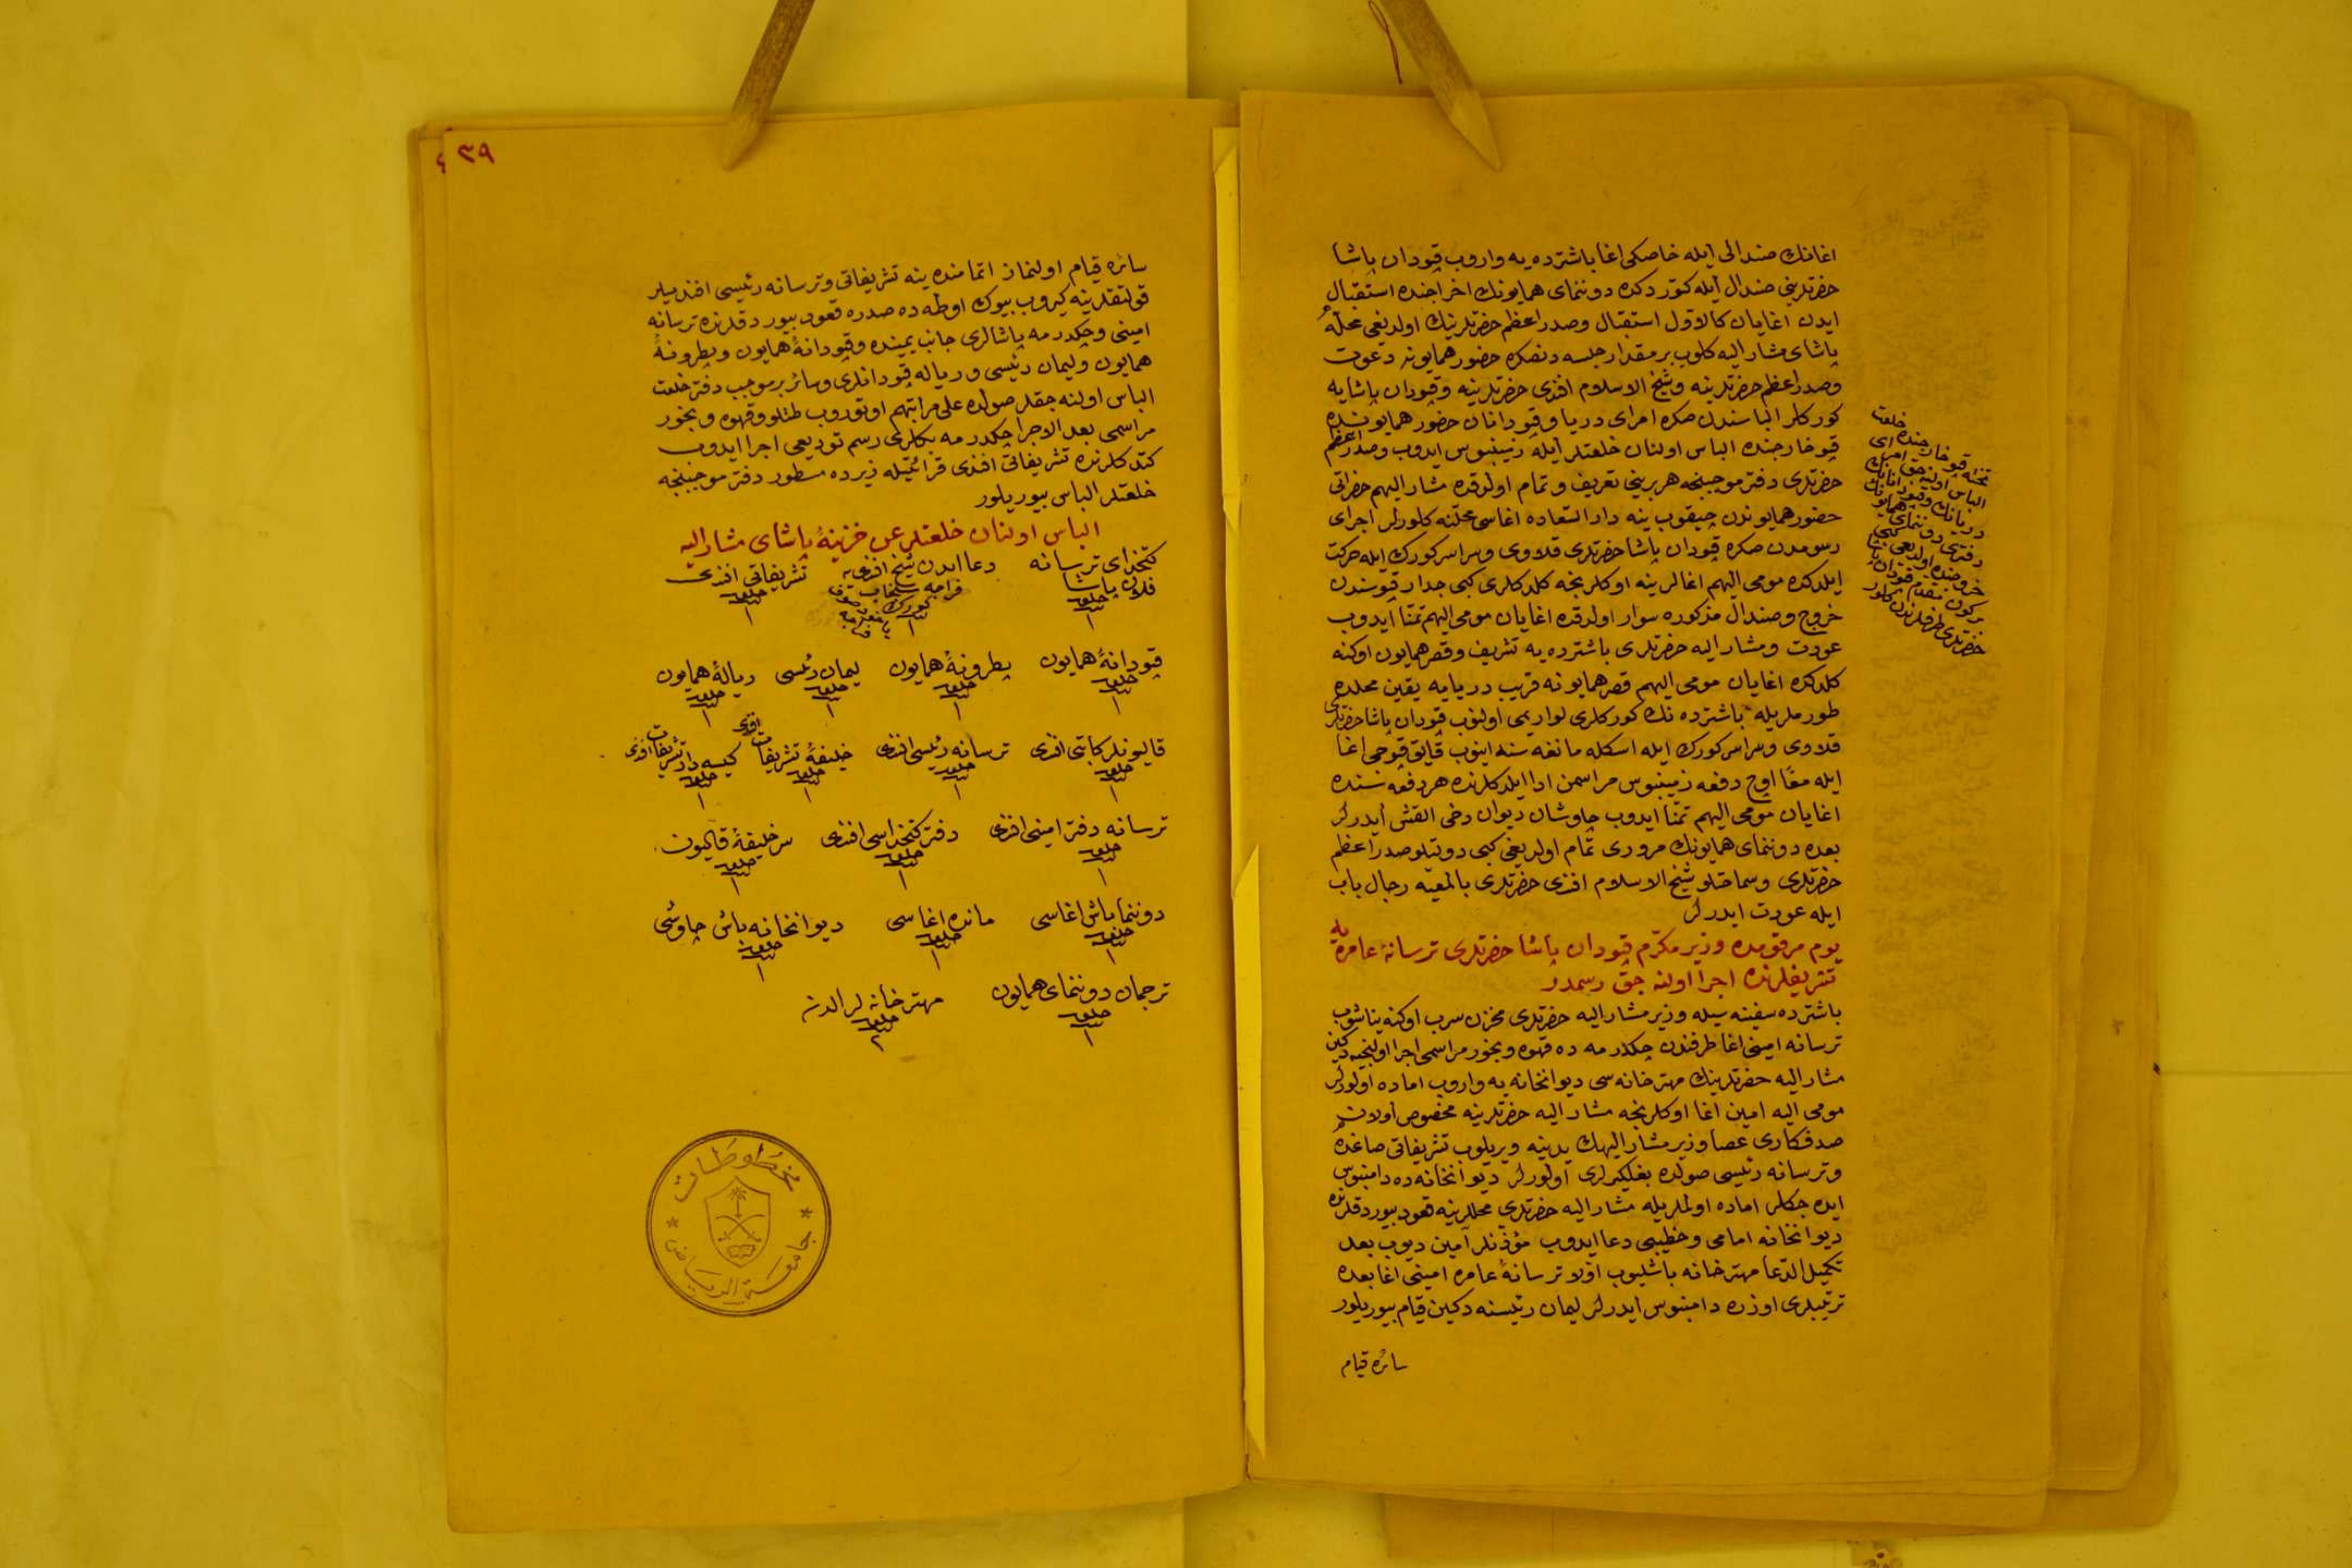 اغانك صندالی ايله خاصكی اغا باشترده يه واروب قپودان پاشا
حضرتلرينی صندال ايله كتوردكده دوننمای همايونك اخراجنده استقبال
ايدن اغايان كالاول استقبال وصدر اعظم حضرتلرينك اولديغی محله
پاشای مشار اليه كلوب بر مقدار جلسه دنصكره حضور همايونه دعوت
وصدر اعظم حضرتلرينه وشيخ الاسلام افندی حضرتلرينه وقپودان پاشايه
كوركلر الباسندن صكره امرای دريا وقپودانان حضور همايونده
قپو خارجنده الباس اولنان خلعتلر ايله زمينبوس ايدوب وصدر اعظم
حضرتلری دفتر موجبنجه هر برينی تعريف وتمام اولدقده مشار اليهم حضراتی
حضور همايوندن چيقوب ينه دار السعاده اغاسی محلنه كلورلر اجرای
رسومدن صكره قپودان پاشا حضرتلری قلاوی وسراسر كورك ايله حركت
ايلدكده مومی اليهم اغالر ينه اوكلرنجه كلدكلری كبی جدار قپوسندن
خروج وصندال مذكوره سوار اولدقده اغايان مومی اليهم تمنا ايدوب
عودت ومشار اليه حضرتلری باشترده يه تشريف وقصر همايون اوكنه
كلدكده اغايان مومی اليهم قصر همايونه قريب دريايه يقين محلده
طورملريله باشترده نك كوركلری لواريمی اولنوب قپودان پاشا حضرتلری
قلاوی وسراسر كورك ايله اسكله مانغه سنه اينوب قايق قپوجی اغا
ايله معًا اوچ دفعه زمينبوس مراسمن ادا ايلدكلرنده هر دفعه سنده
اغايان مومی اليهم تمنا ايدوب چاوشان ديوان دخی القش ايدرلر
بعده دوننمای همايونك مروری تمام اولديغی كبی دولتلو صدر اعظم
حضرتلری وسماحتلو شيخ الاسلام افندی حضرتلری بالمعيه رجال باب
ايله عودت ايدرلر
يوم مرقومده وزير مكرم قپودان پاشا حضرتلری ترسانۀ عامره يه
تشريفلرنده اجرا اولنه جق رسمدر
باشترده سفينه سيله وزير مشار اليه حضرتلری مخزن سرب اوكنه يناشوب
ترسانه امينی اغا طرفندن چكدرمه ده قهوه وبخور مراسمی اجرا اولنجيه دكين
مشار اليه حضرتلرينك مهترخانه سی ديوانخانه يه واروب اماده اولورلر
مومی اليه امين اغا اوكلرنجه مشار اليه حضرتلرينه مخصوص اولان
صدفكاری عصا وزير مشار اليهك يدينه ويريلوب تشريفاتی صاغده
وترسانه رئيسی صولده بغلكيرلری اولورلر ديوانخانه ده دامنبوس
ايده جكلر اماده اولملريله مشار اليه حضرتلری محللرينه قعود بيوردقلرنده
ديوانخانه امامی وخطيبی دعا ايدوب مؤذنلر آمين ديوب بعد
تكميل الدعا مهترخانه باشليوب اولا ترسانۀ عامره امينی اغا بعده
ترتيبلری اوزره دامنبوس ايدرلر ليمان رئيسنه دكين قيام بيوريلور
سائره قيام
تختله قپو خارجنده خلعت
الباس اولنه جق امرای
دريانك وقپودانانك
دفتری دوننمای همايونك
خروجنده اولديغی كبی
بر كون مقدم قپودان پاشا
حضرتلری طرفلرندن كلور
٣٩
سائره قيام اولنماز اتمامنده ينه تشريفاتی وترسانه رئيسی افنديلر
قولتقلرينه كيروب بيوك اوطه ده صدره قعود بيوردقلرنده ترسانه
امينی وچكدرمه پاشالری جانب يمينده وقپودانۀ همايون وپطرونۀ
همايون وليمان رئيسی ورياله قپودانلری وسائر بر موجب دفتر خلعت
الباس اولنه جقلر صولده علی مراتبهم اوتوروب طتلو وقهوه وبخور
مراسمی بعد الاجرا چكدرمه بكلری رسم توديعی اجرا ايدوب
كتدكلرنده تشريفاتی افندی قرائتيله زيرده مسطور دفتر موجبنجه
خلعتلر الباس بيوريلور
الباس اولنان خلعتلر عن خزينۀ پاشای مشار اليه
كتخدای ترسانه فلان پاشا خلعت ١
دعا ايدن شيخ افندی يه فراجه سنجاب كورك ١
تشريفاتی افندی خلعت ١
قپودانۀ همايون خلعت ١
پطرونۀ همايون خلعت ١
ليمان رئيسی خلعت ١
ريالۀ همايون خلعت ١
قاليونلر كاتبی افندی خلعت ١
ترسانه رئيسی افندی خلعت ١
خليفۀ تشريفات افندی خلعت ١
كيسه دار تشريفات افندی خلعت ١
ترسانه دفتر امينی افندی خلعت ١
دفتر كتخداسی افندی خلعت ١
سر خليفۀ قاليون خلعت ١
دوننما باش اغاسی خلعت ١
مانده اغاسی خلعت ١
ديوانخانه باش چاوشی خلعت ١
ترجمان دوننمای همايون خلعت ١
مهترخانه لر الدنه خلعت ٢
مخطوطات
جامعة الرياض